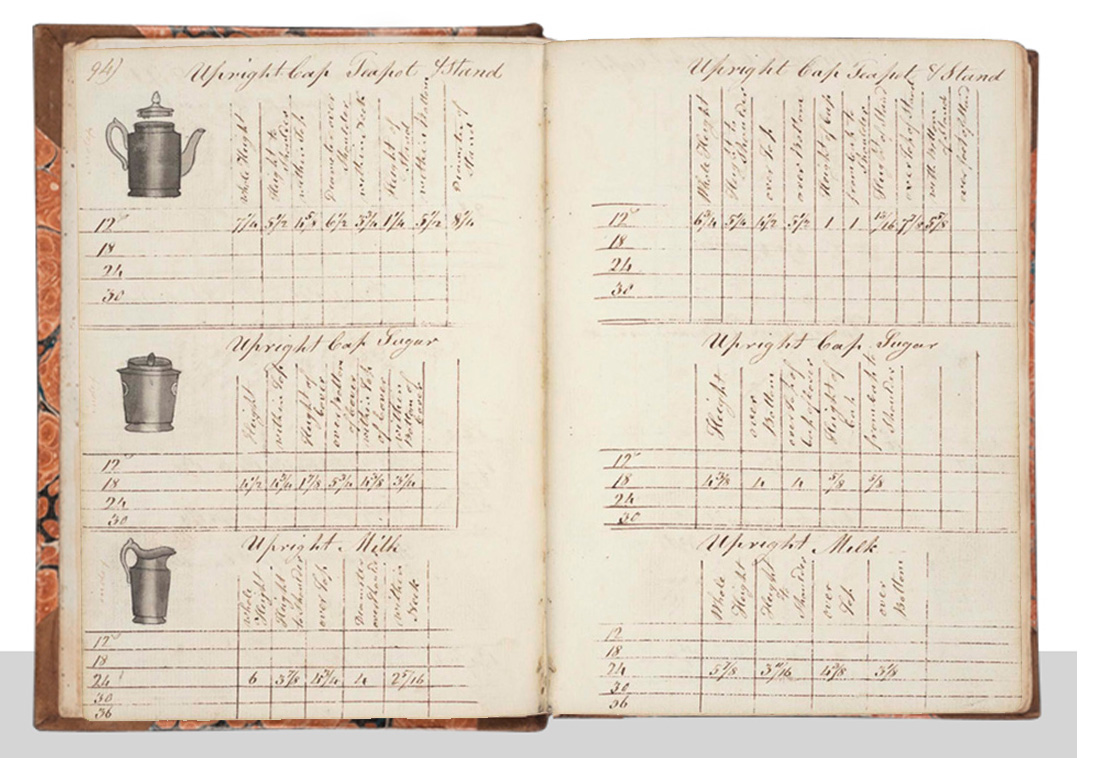 94)
Upright Cap Teapot & Stand
Whole Height
Height to Shoulder
within Top
Diameter over Shoulder
within Neck
Height of Stand
within Bottom
Diameter of Stand
12s 7 1/4 5 1/2 4 5/8 6 1/2 5 3/4 1 1/4 5 1/2 8 1/4
18
24
30
Upright Cap Sugar
Height
within Top
Height of Cover
over Button of Cover
within Top of Cover
within Bottom of Cover
12s
18 4 1/2 4 3/4 1 7/8 5 3/4 4 3/8 3 1/4
24
30
Upright Milk
Whole Height
Height to Shoulder
over Top
Diameter over Shoulder
within Neck
12s
18
24 6 3 7/8 4 3/4 4 2 5/16
30
36
Upright Cap Teapot & Stand
Whole Height
Height to Shoulder
over Top
over Bottom
Height of Cap
from Cap to Shoulder
Height of Stand
over Top of Stand
with Bottom of Stand
over foot of Stand
12s 6 3/4 5 1/4 4 1/2 5 1/2 1 1 13/16 7 7/8 5 5/8
18
24
30
Upright Cap Sugar
Height
over Bottom
over Top of
Height of Cap
from to Shoulder
12s
18 4 3/8 4 4 5/8 5/8
24
30
Upright Milk
Whole Height
Height to Shoulder
over Top
over Bottom
12
18
24 5 7/8 3 11/16 4 3/8 3 1/8
30
36